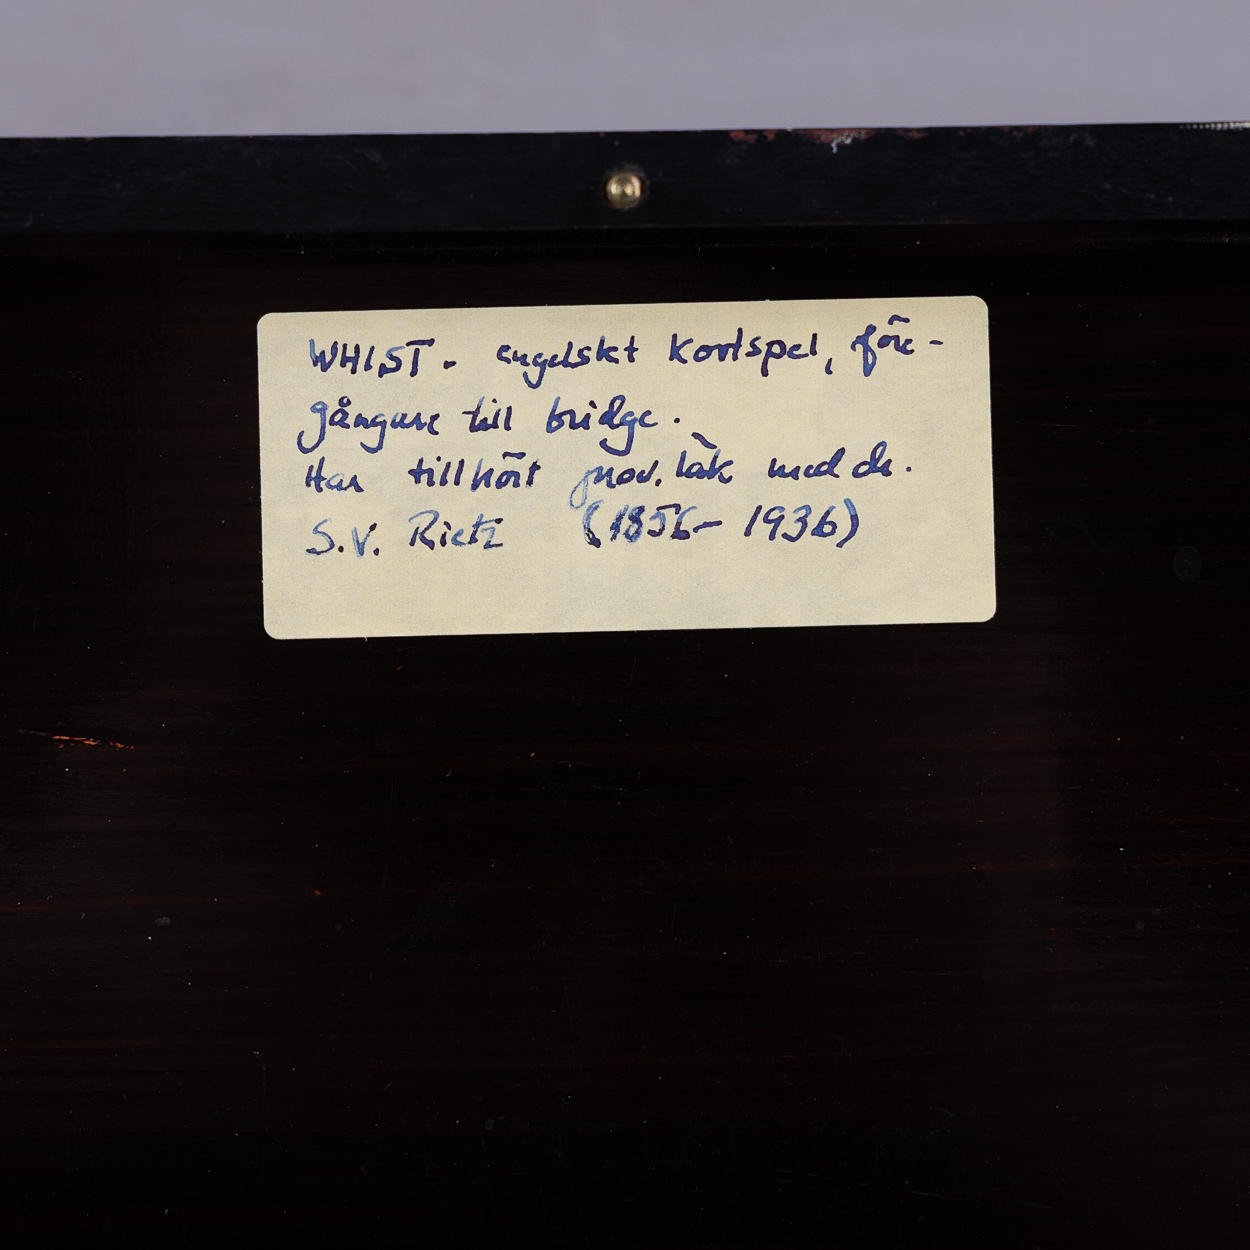 WHIST. engelskt kortspel, före-
gångare till bridge.
Har tillhört prov. läk med dr.
S.V. Rietz (1856- 1936)